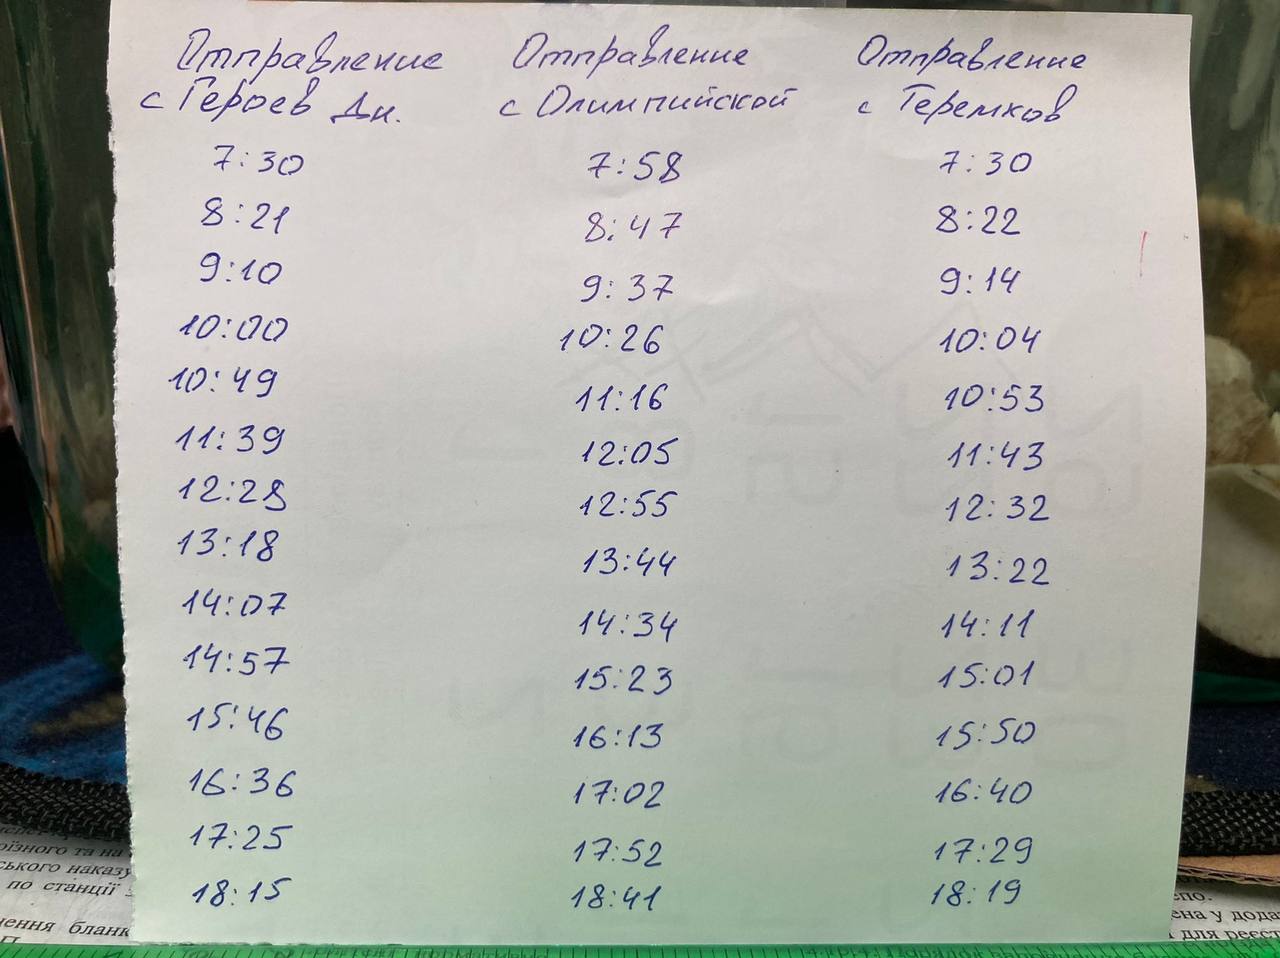 Отправление Отправление Отправление
с Героев Дн. с Олимпийской с Теремков
7:30 7:58 7:30
8:21 8:47 8:22
9:10 9:37 9:14
10:00 10:26 10:04
10:49 11:16 10:53
11:39 12:05 11:43
12:28 12:55 12:32
13:18 13:44 13:22
14:07 14:34 14:11
14:57 15:23 15:01
15:46 16:13 15:50
16:36 17:02 16:40
17:25 17:52 17:29
18:15 18:41 18:19
ського наказу
по станції
чення бланк
ена у дода
для реєст